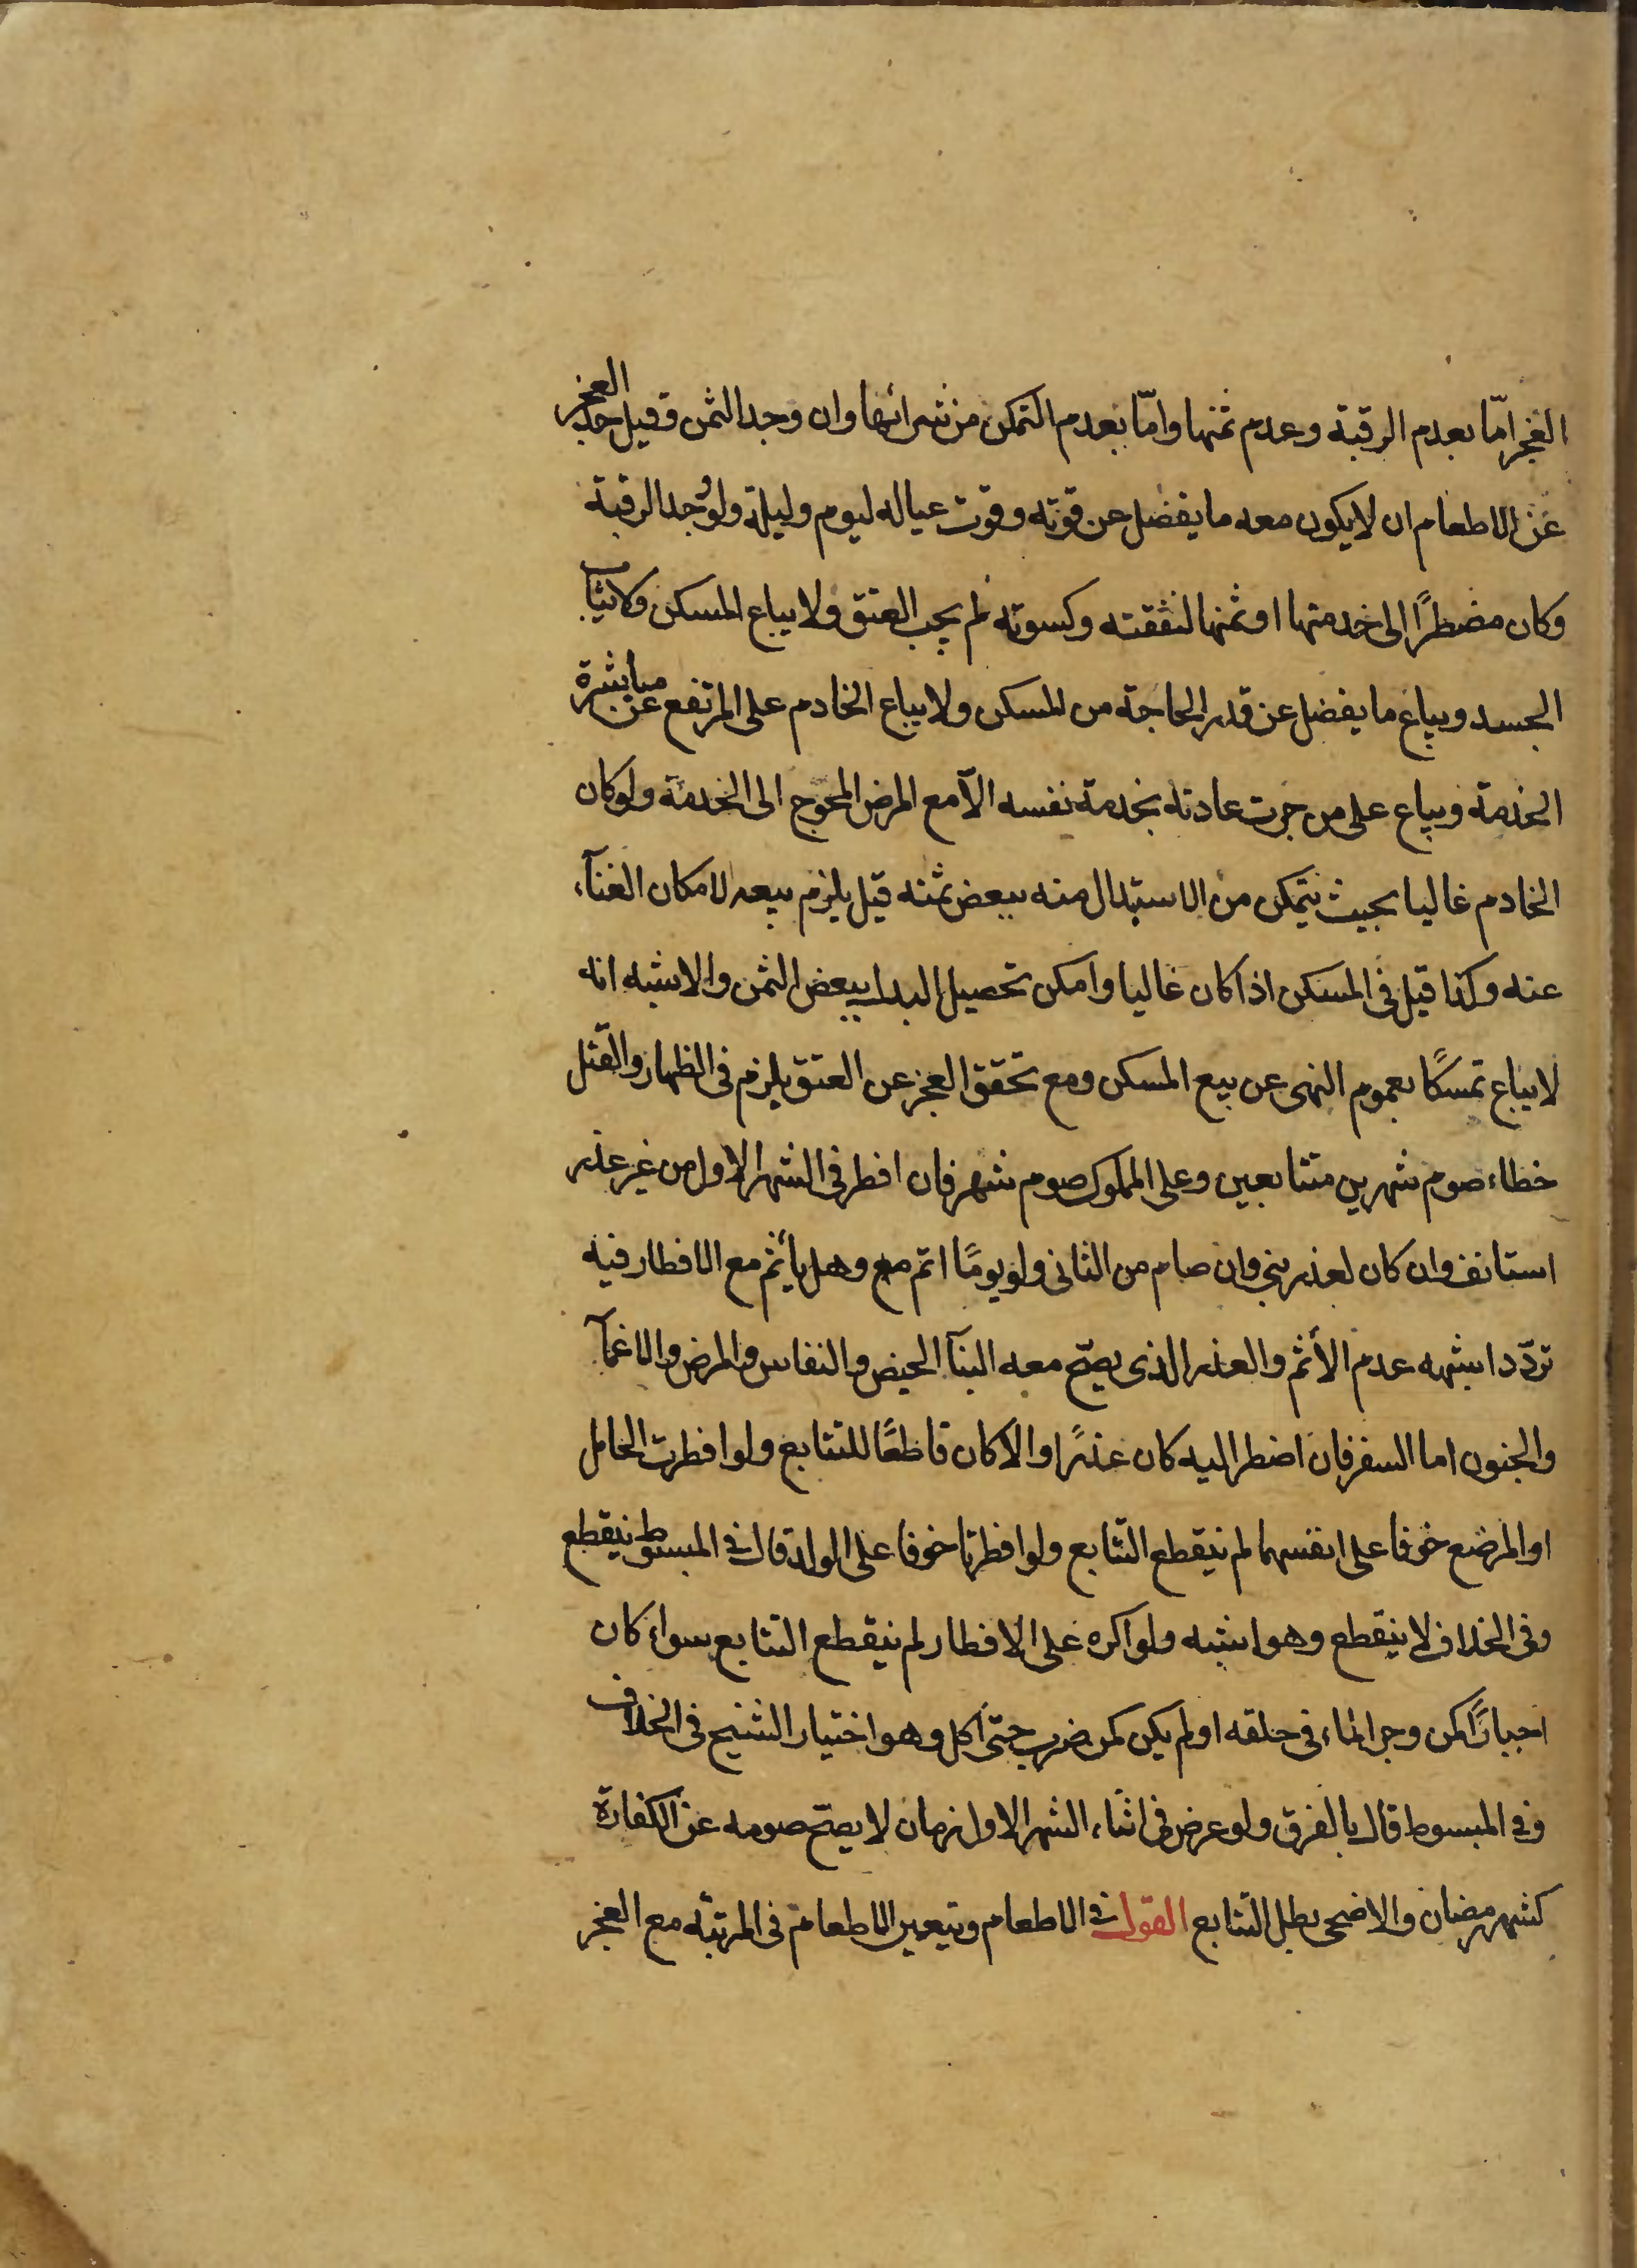 العجز امّا بعدم الرقبة وعدم ثمنها وامّا بعدم التمكن من شرائها وان وجد الثمن وقيل حد العجز
عن الاطعام ان لا يكون معه ما يفضل عن قوته وقوت عياله ليوم وليلة ولو وجد الرقبة
وكان مضطرًا الى خدمتها او ثمنها لنفقته وكسوته لم يجب العتق ولا يباع المسكن ولا ثياب
الجسد ويباع ما يفضل عن قدر الحاجة من المسكن ولا يباع الخادم على المرتفع عن مباشرة
الخدمة ويباع على من جرت عادته بخدمة نفسه الّا مع المرض المحوج الى الخدمة ولو كان
الخادم غاليا بحيث يتمكن من الاستبدال منه ببعض ثمنه قيل يلزم بيعه لامكان الغنآء
عنه وكذا قيل في المسكن اذا كان غاليا وامكن تحصيل البدل ببعض الثمن والاشبه انه
لا يباع تمسكًا بعموم النهى عن بيع المسكن ومع تحقق العجز عن العتق يلزم فى الظهار والقتل
خطاء صوم شهرين متتابعين وعلى المملوك صوم شهر فان افطر فى الشهر الاول من غير عذر
استانف وان كان لعذر بنى وان صام من الثانى ولو يومًا اتم مع وهل يأثم مع الافطار فيه
تردّد اشبهه عدم الأثم والعذر الذى يصحّ معه البنآ الحيض والنفاس والمرض والاغمآ
والجنون اما السفر فان اضطر اليه كان عذرًا والا كان قاطعًا للتتابع ولو افطرت الحامل
او المرضع خوفا على انفسهما لم ينقطع التتابع ولو افطرتا خوفا على الولد قال في المبسوط ينقطع
وفى الخلاف لا ينقطع وهو اشبه ولو اكره على الافطار لم ينقطع التتابع سواء كان
اجبارًا كمن وجر الماء فى حلقه او لم يكن كمن ضرب حتى اكل وهو اختيار الشيخ فى الخلاف
وفي المبسوط قال بالفرق ولو عرض فى اثناء الشهر الاول زمان لا يصحّ صومه عن الكفارة
كشهر رمضان والاضحى بطل التتابع القول في الاطعام ويتعين الاطعام فى المرتبة مع العجز